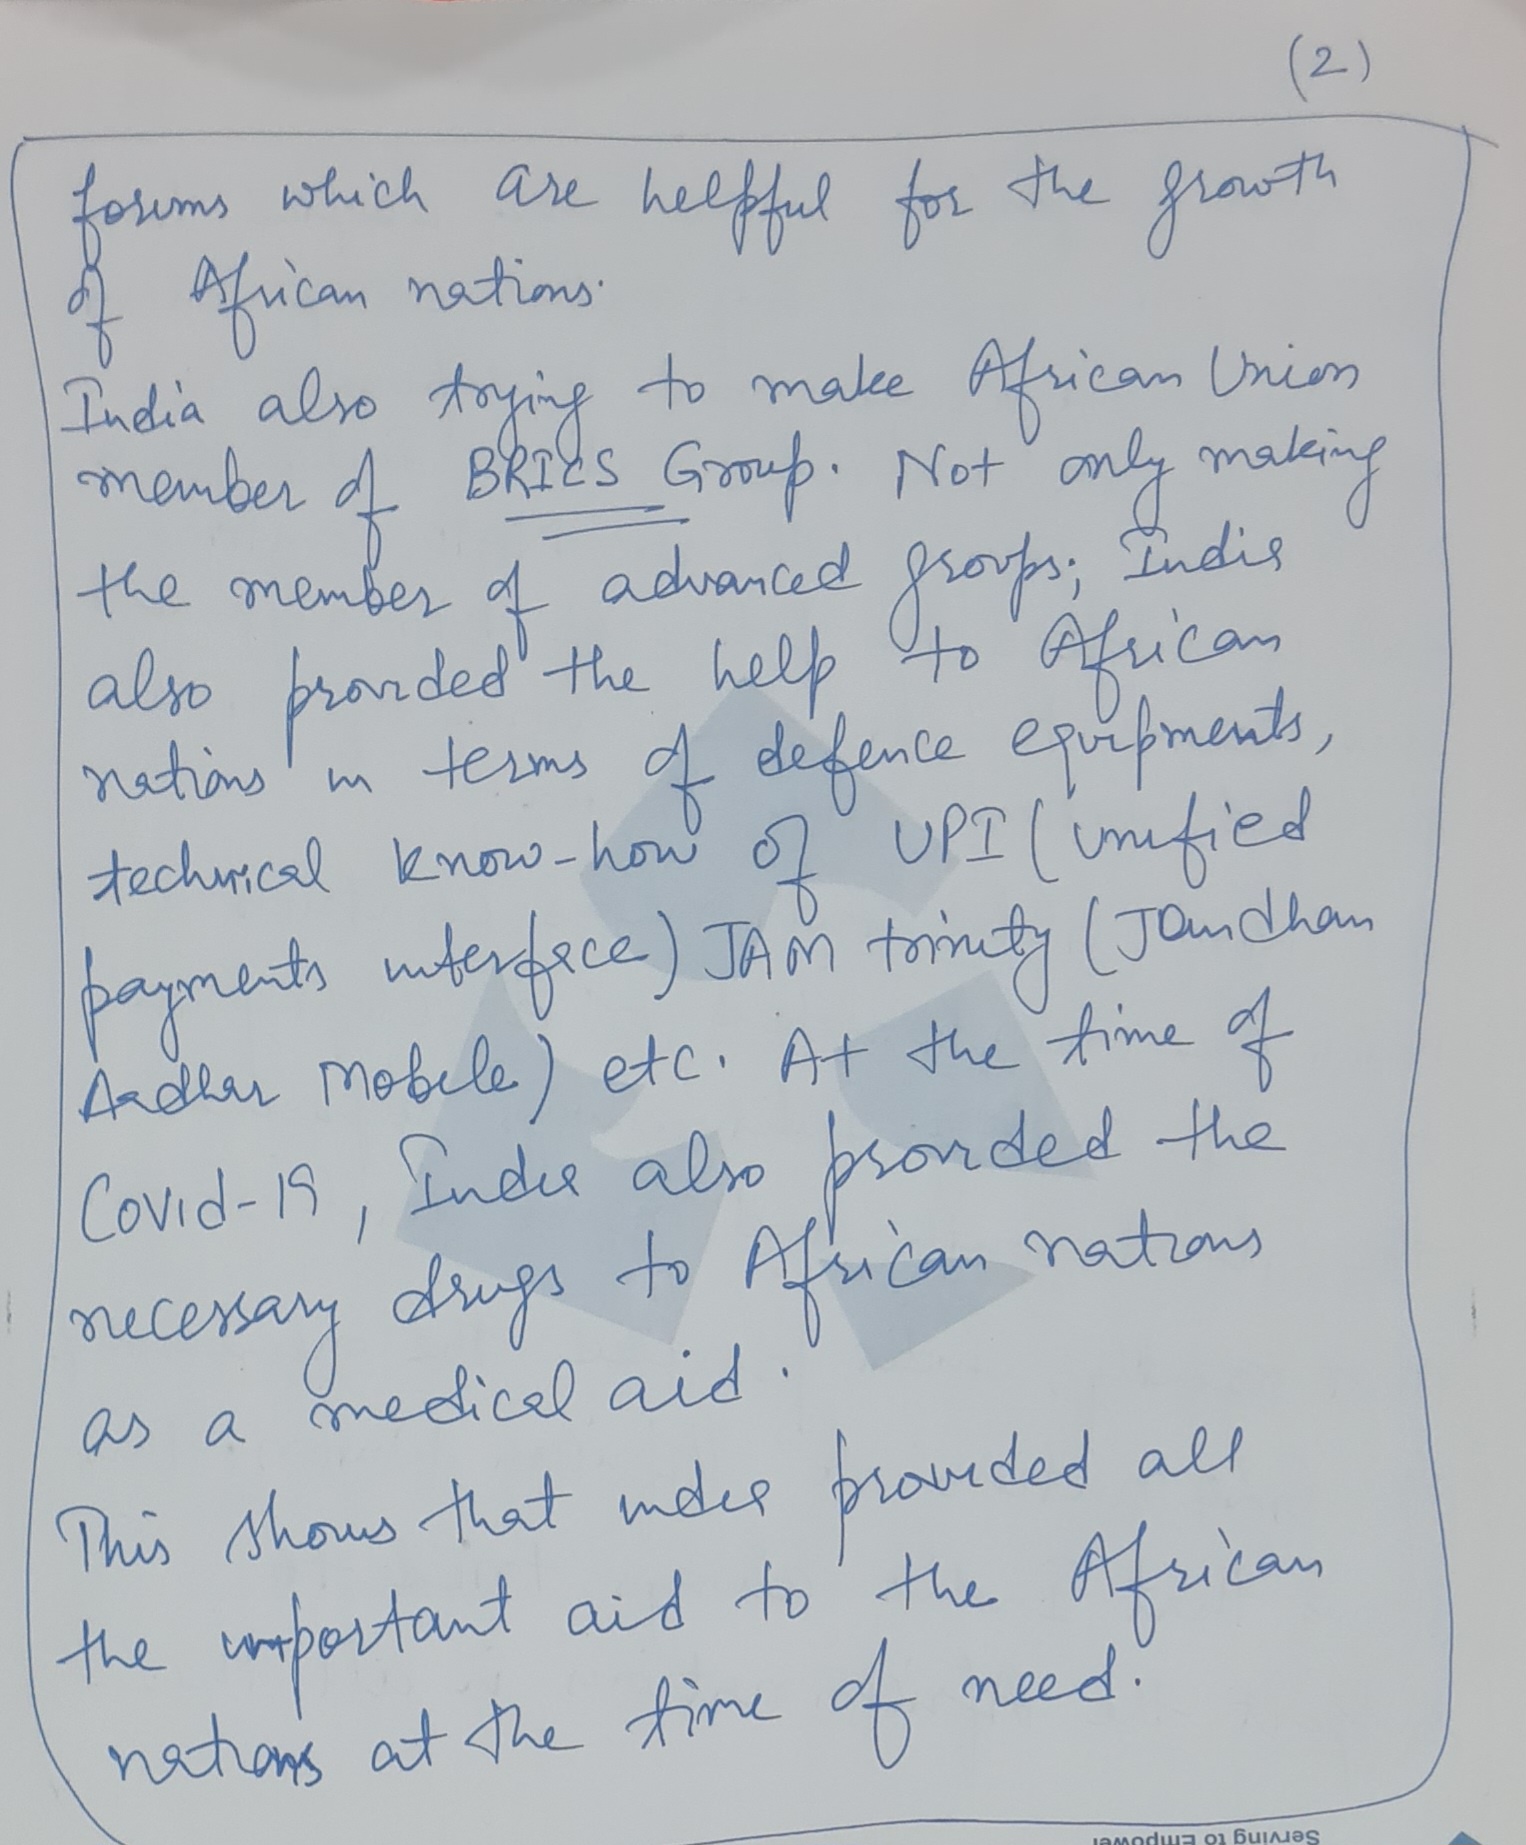 (2)
forums which are helpful for the growth
of African nations.
India also trying to make African Union
member of BRICS Group. Not only making
the member of advanced groups; India
also provided the help to African
nations in terms of defence equipments,
technical know-how of UPI (unified
payments interface) JAM trinity (Jandhan
Aadhar Mobile) etc. At the time of
Covid-19, India also provided the
necessary drugs to African nations
as a medical aid.
This shows that india provided all
the important aid to the African
nations at the time of need.
Serving to Empower